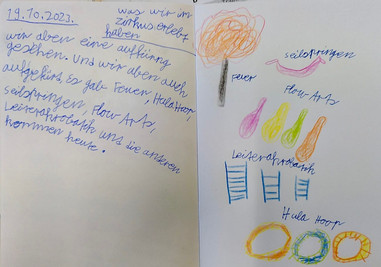 19.10.2023.
was wir im
zirkus erlebt
haben
wir aben eine auffürng
gesehen. Und wir aben auch
aufgefürt es gab Feuer, Hula Hoop,
seilspringen, Flow Arts,
Leiterakrobatik uns die anderen
kommen heute.
seilspringen
feuer
Flow Arts
Leiterakrobatik
Hula Hoop